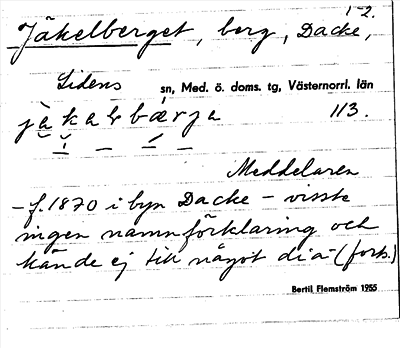 1-2.
Jäkelberget, berg, Dacke,
Lidens sn, Med. ö. doms. tg, Västernorrl. län
113.
Meddelaren
-f. 1870 i byn Dacke - visste
ingen namnförklaring och
kände ej till något dia- (forts.)
Bertil Flemström 1955